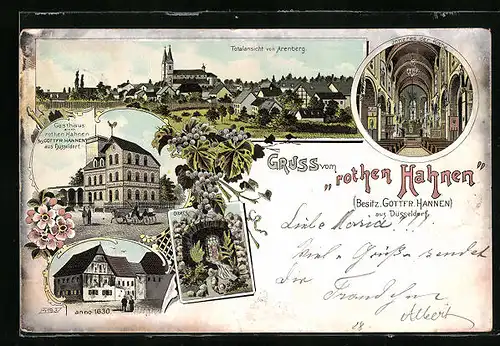 Totalansicht von Arenberg.
Inneres der
Gasthaus
zum
rothen Hahnen
v. GOTTFR. HANNEN
aus Düsseldorf
GRUSS vom
"rothen Hahnen"
(Besitz. GOTTFR. HANNEN)
aus Düsseldorf.
Liebe Maria!!!
Viele Grüße sendet
die
Albert
anno 1630.